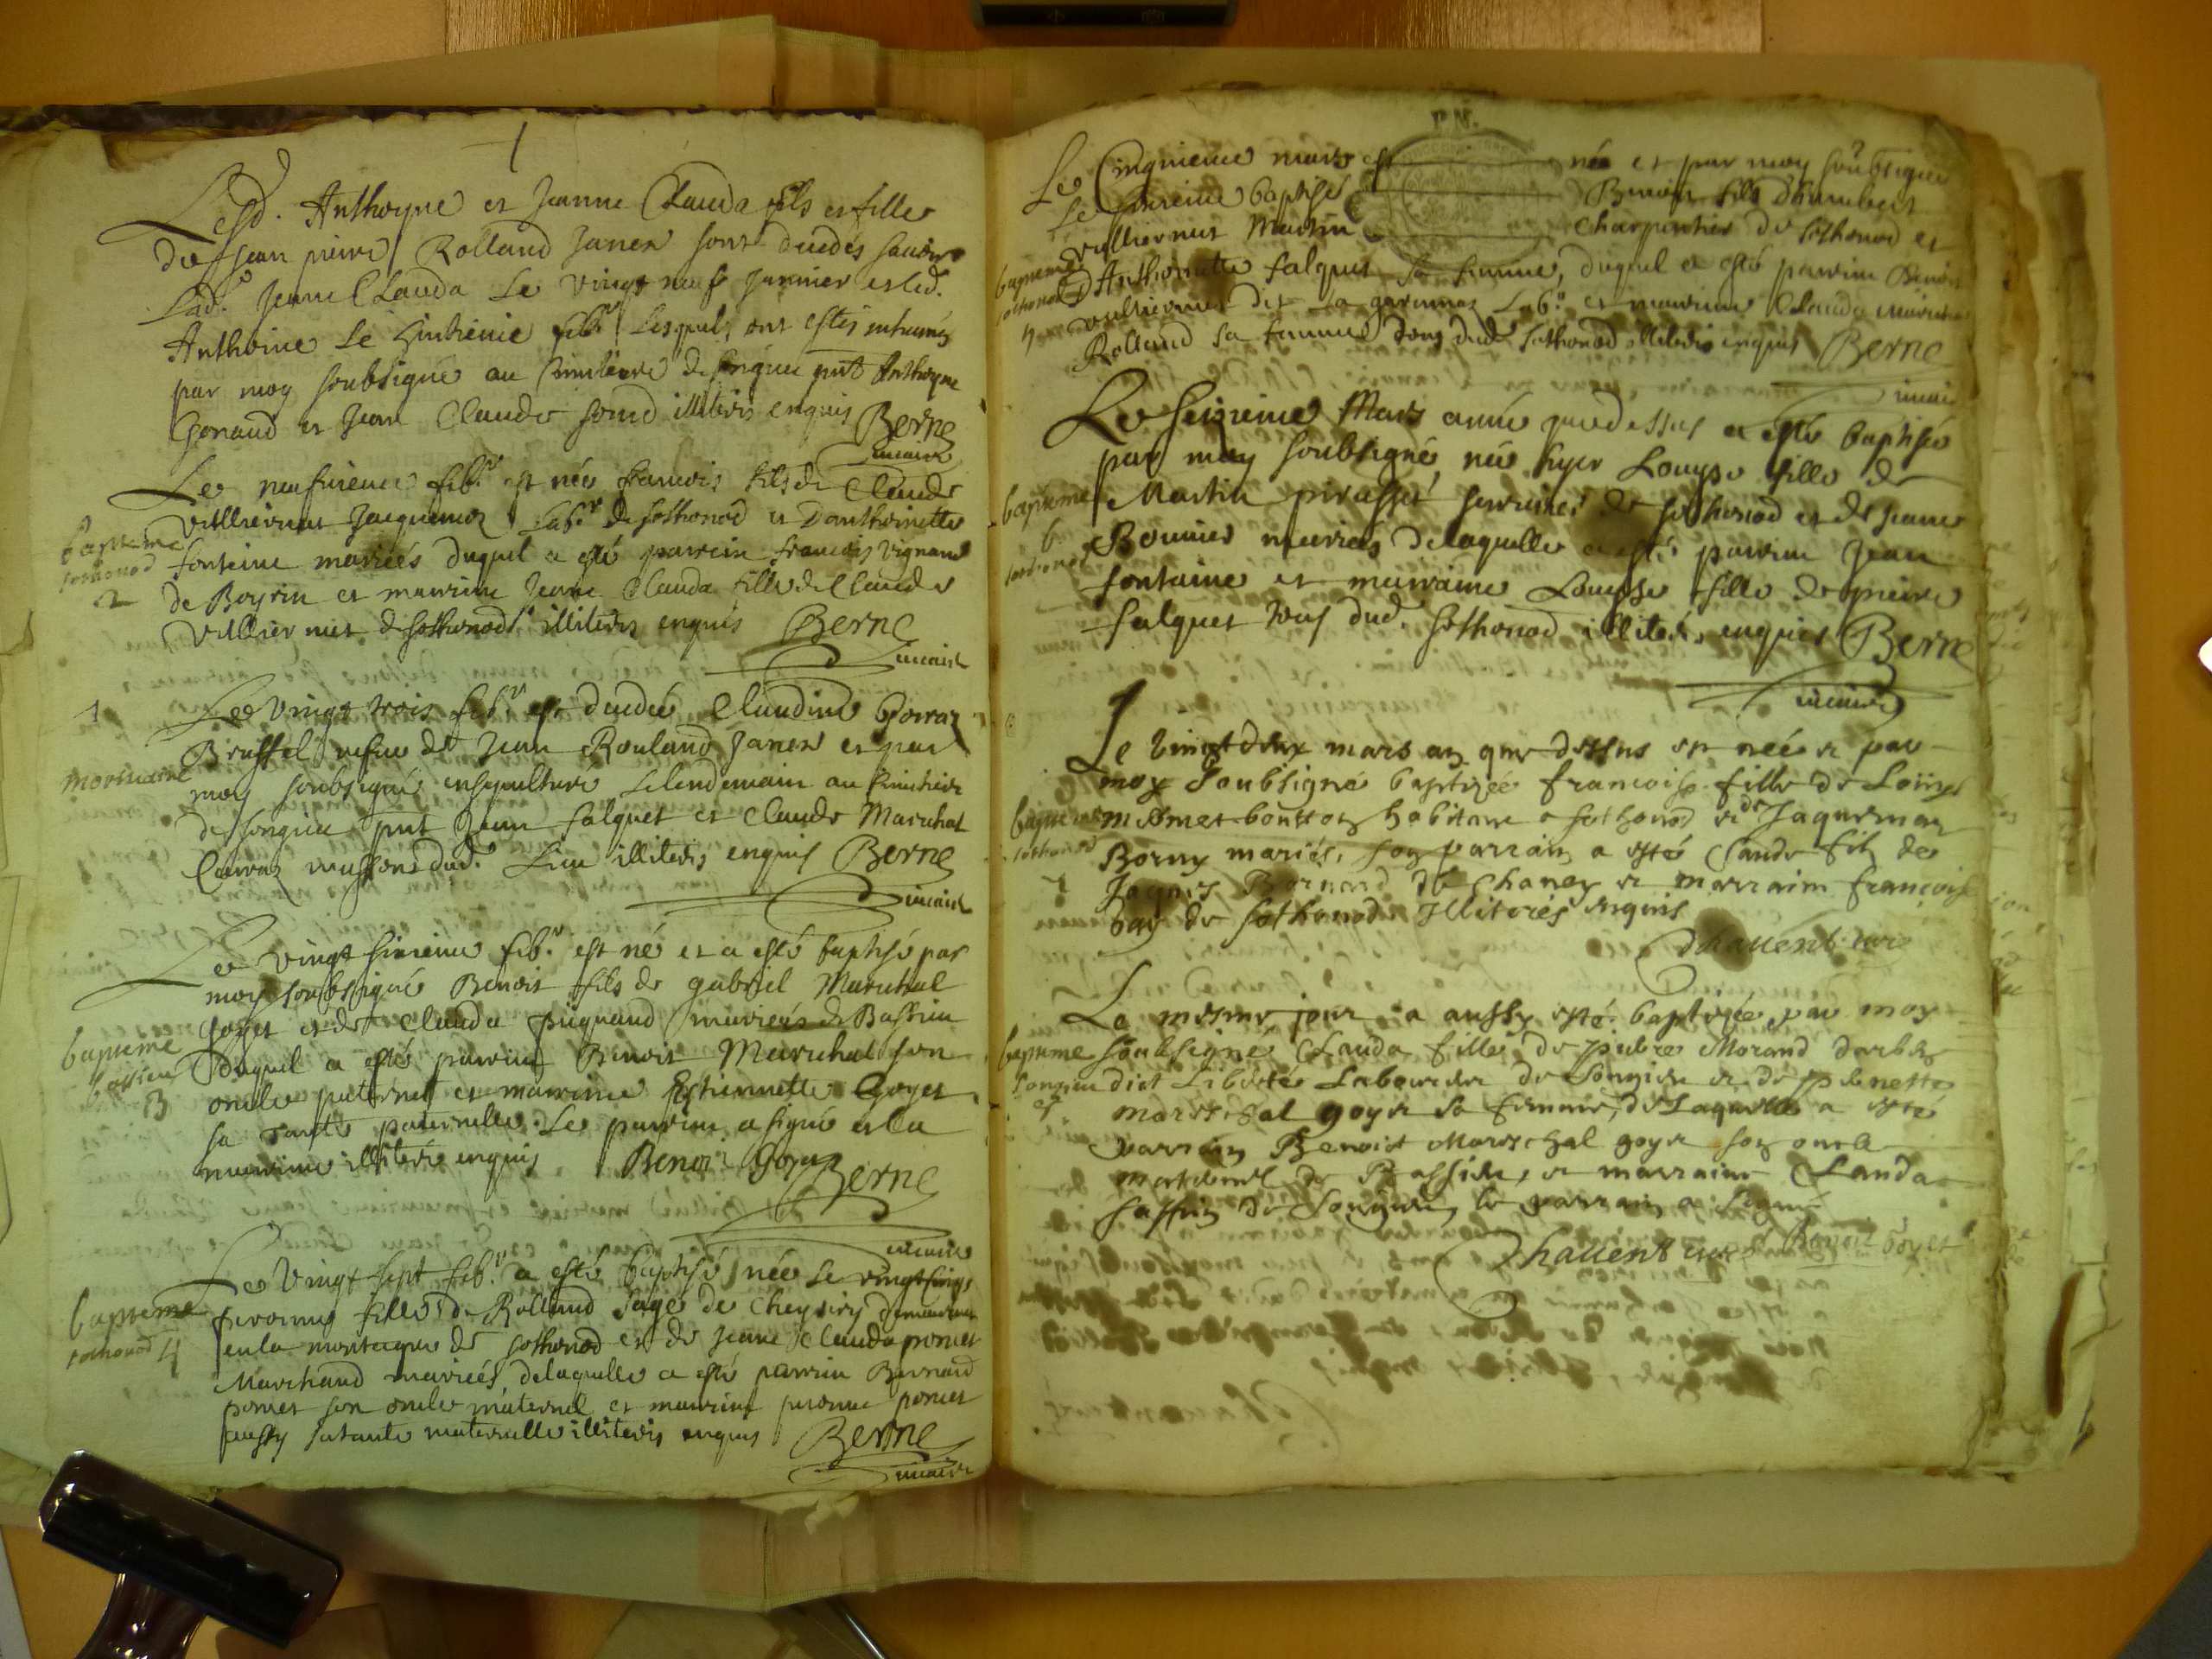 Lesd. Anthoyne et Jeanne Clauda fils et fille
de Jean pierre Rolland Janex sont decedés sauoir
Lad. Jeanne Clauda Le vingt neuf Januier et led.
Anthoine Le febr Lesquels ont estés enterrés
par moy soubsigné au Cimitiere de songieu pnt Anthoyne
Gonaud et Jean Claude illiterés enquis Berne
vicaire
Le neufuieme feb.r est née francois fils de Claude
vulliermet Jacquemoz Lab.r de sothonod et Danthoinette
fonteine mariés duquel a esté parrein francois vignand
de Boyrin et marrine Jeane Clauda fille de Claude
vulliermet de sothonod illiterés enquis Berne
vicaire
bapteme
sothonod
2
Le vingt trois feb.r est decedée Claudine
Brussel vefue de Jean Rouland Janex et par
moy soubsigné ensepulturé Lelendemain au Cimitiere
de songieu pnt Jean falquet et Claude Marechal
massons dud. Lieu illiterés enquis Berne
vicaire
1
mortuaire
Le vingt sixieme feb.r est né et a esté baptisé par
moy soubsigné Benoit fils de gabriel Marechal
goyet et de Clauda pugnand mariés de Bassieu
duquel a esté parrin Benoit Marechal son
oncle paternel et marrine Estiennette Goyet
sa tante paternelle. Le parrin a signé et la
marrine illiterée enquis Benoi Goyet
Berne
vicaire
bapteme
bassieu
3
Le Vingt sept feb.r a esté baptisé née Le vingt cinq
peronne fille de Rolland sage de Cheysiry demeurant
en la montagne de sothonod et de Jeane Clauda poncet
Marchand mariés delaquelle a esté parrin Bernard
poncet son oncle maternel et marrine peronne poncet
aussy sa tante maternelle illiterés enquis Berne
vicaire
bapteme
sothonod 4
P.N.
Le Cinquieme mars est née et par moy soubsigné
Le baptisé Benoit fils dhumbert
vulliermet Martin charpentier de sothonod et
D'Anthoinette falquet sa femme, duquel a esté parrin Benoit
vulliermet dit La Lab.r et marrine Clauda
Rolland sa femme tous dud. sothonod illiterés enquis Berne
vicaire
bapteme
sothonod
Le seizieme Mars année que dessus a esté baptisé
par moy soubsigné née hyer Louyse fille de
Martin pirasset serrurier de sothonod et de Jeane
Bonnier mariés delaquelle a esté parrin Jean
fontaine et marraine Louyse fille de pierre
falquet tous dud. sothonod illiterés enquis Berne
vicaire
bapteme
6
sothonod
Le vingt deux mars an que dessus est née et par
moy soubsigné baptizée francoise fille de Loüys
bontron habitant a sothonod et de Jaquemaz
Borny mariés, son parrain a esté Claude fils de
Jaques Bornard de Chaney et marraine françoise
bay de sothonod Illiterés enquis
Dhauent curé
bapteme
sothonod
7
Le mesme jour a aussy esté baptizée par moy
soubsigné Clauda fille de pierre Morand
dict Liberté Laboureur de Songieu et de pernette
mareschal goyet sa femme, de Laquelle a esté
parrain Benoist Mareschal goyet son oncle
maternel de Bassieu, et marraine Clauda
de Songieu, le parrain a signé
Dhauent curé Benoit Goyet
bapteme
Songieu
8